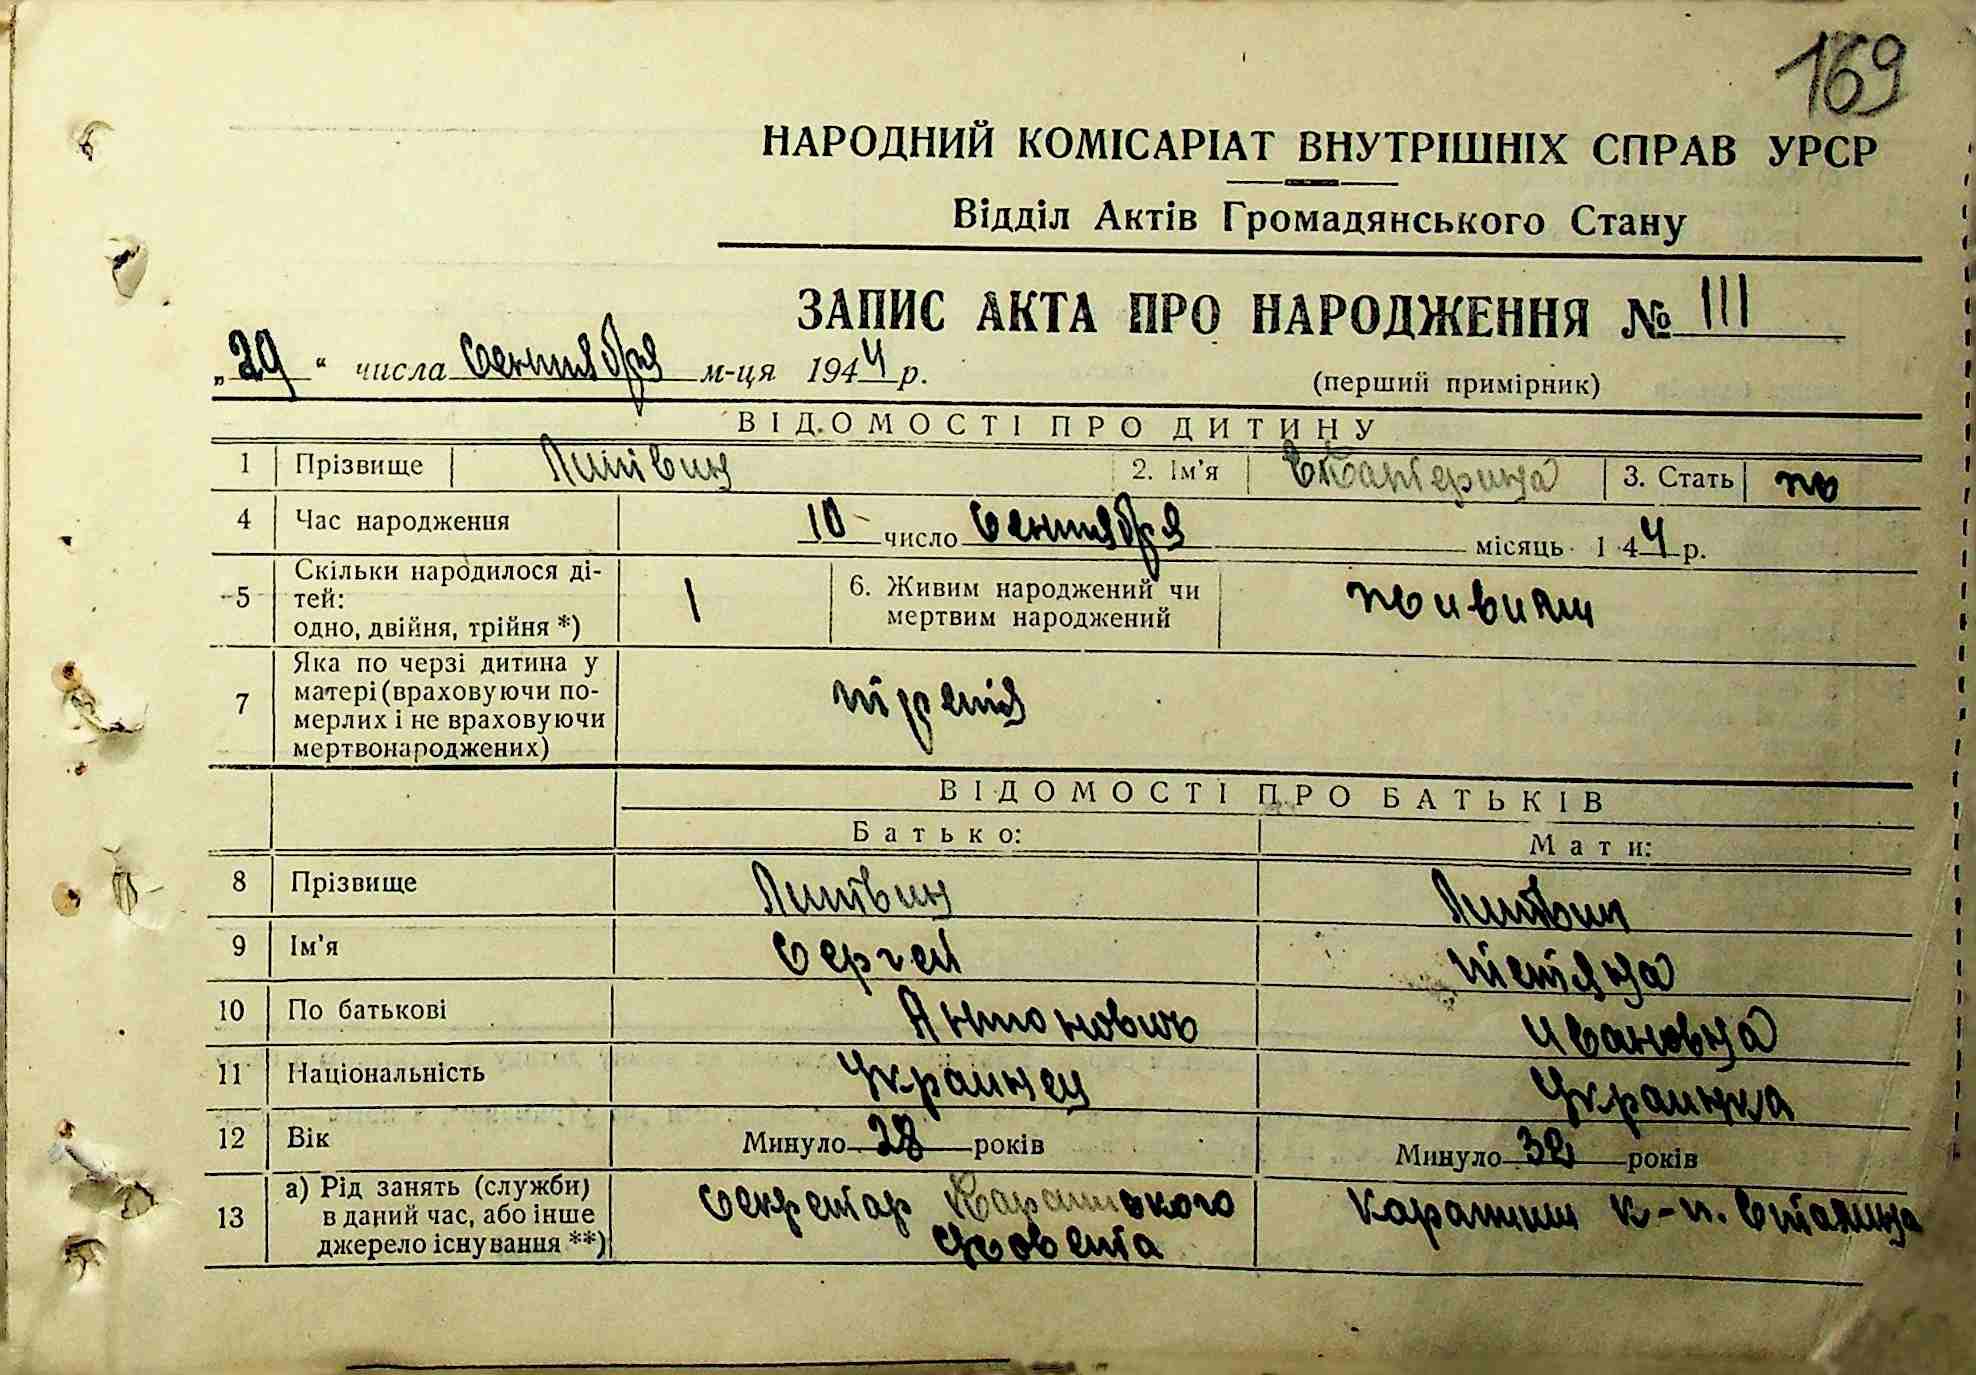 169
НАРОДНИЙ КОМІСАРІАТ ВНУТРІШНІХ СПРАВ УРСР
Відділ Актів Громадянського Стану
ЗАПИС АКТА ПРО НАРОДЖЕННЯ № 111
„29“ числа Сентября м-ця 1944 р.
(перший примірник)
ВІДОМОСТІ ПРО ДИТИНУ
1 Прізвище Литвин 2. Ім'я Екатерина 3. Стать ж
4 Час народження 10 число Сентября місяць 1 44 р.
5 Скільки народилося ді-
тей:
одно, двійня, трійня *) 1 6. Живим народжений чи
мертвим народжений живиям
7 Яка по черзі дитина у
матері (враховуючи по-
мерлих і не враховуючи
мертвонароджених) третія
ВІДОМОСТІ ПРО БАТЬКІВ
Батько: Мати:
8 Прізвище Литвин Литвин
9 Ім'я Сергей Тетяна
10 По батькові Антонович Ивановна
11 Національність Украинец Украинка
12 Вік Минуло 28 років Минуло 32 років
13 а) Рід занять (служби)
в даний час, або інше
джерело існування **) Секретар ского
К-п. Сталина